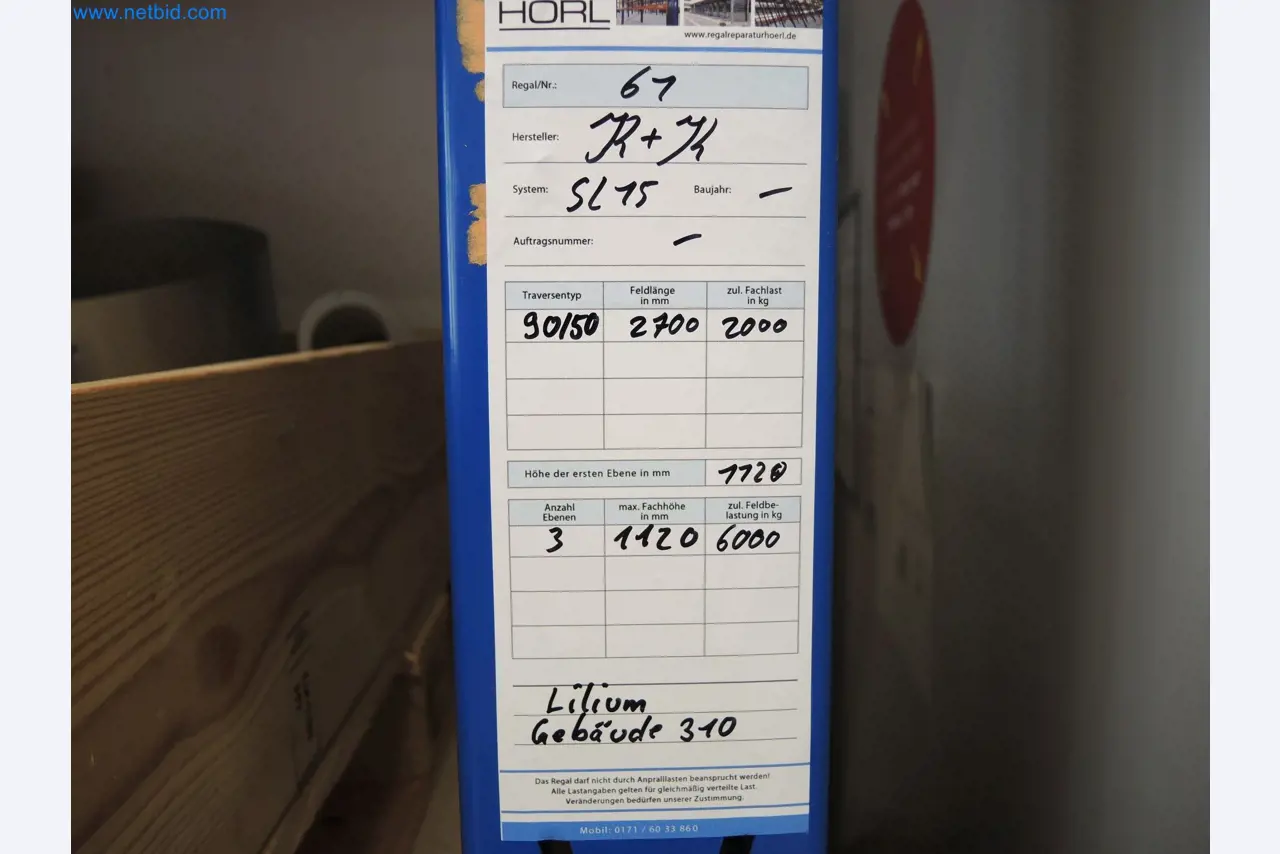 www.netbid.com
HÖRL
www.regalreparaturhoerl.de
Regal/Nr.: 61
Hersteller: K+K
System: SL15 Baujahr: –
Auftragsnummer: –
Traversentyp Feldlänge in mm zul. Fachlast in kg
90/50 2700 2000
Höhe der ersten Ebene in mm 1120
Anzahl Ebenen max. Fachhöhe in mm zul. Feldbe-lastung in kg
3 1120 6000
Lilium
Gebäude 310
Das Regal darf nicht durch Anpralllasten beansprucht werden!
Alle Lastangaben gelten für gleichmäßig verteilte Last.
Veränderungen bedürfen unserer Zustimmung.
Mobil: 0171 / 60 33 860